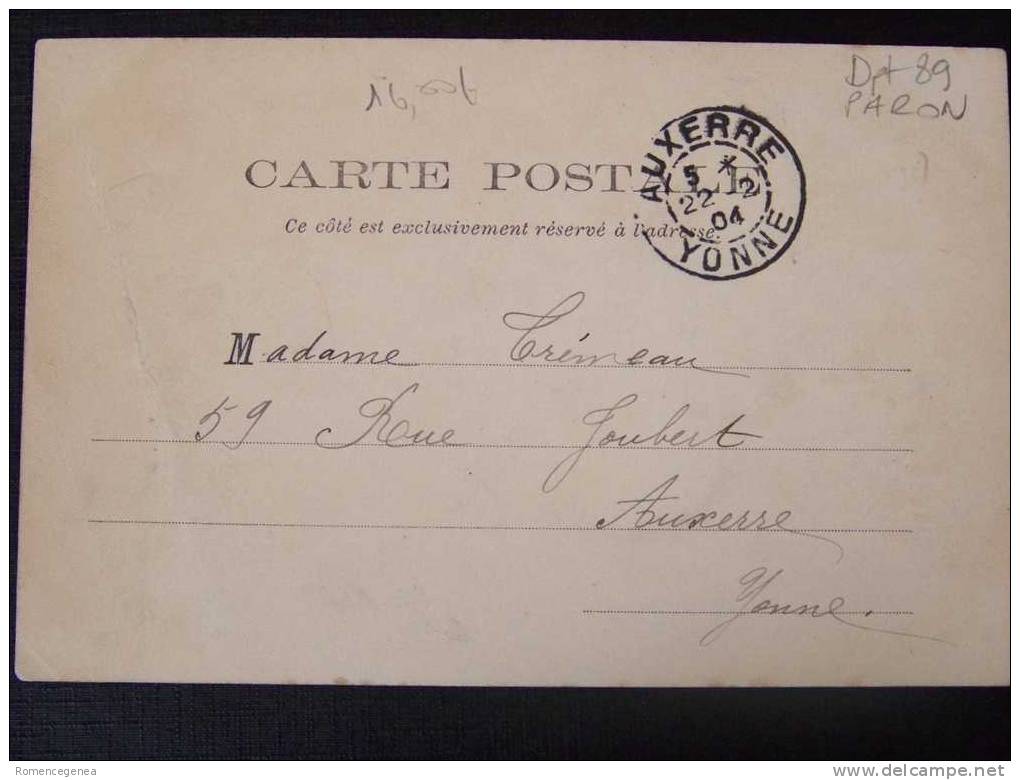 Dpt 89
PARON
CARTE POSTALE
Ce côté est exclusivement réservé à l'adresse.
AUXERRE
5 *
22 - 2
04
YONNE
Madame Trémeau
59 Rue Joubert
Auxerre
Yonne.
Romencegenea
www.delcampe.net